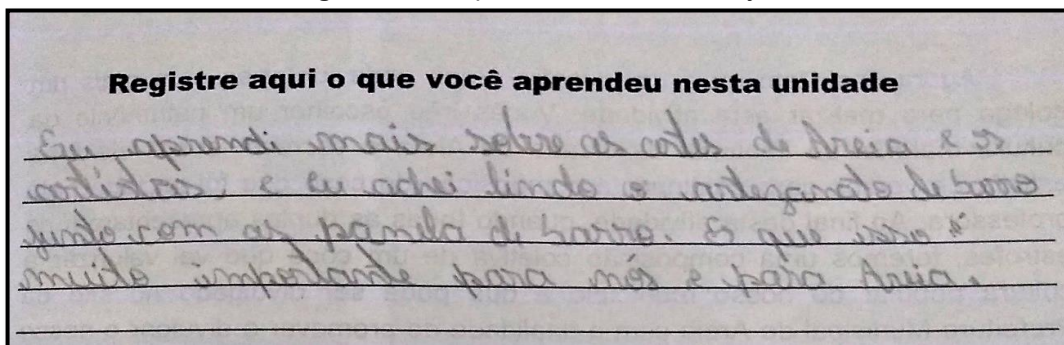 Registre aqui o que você aprendeu nesta unidade
Eu, aprendi mais sobre as artes de Areia e os
artistas, e eu achei lindo o artezanato de barro
junto com as panela de barro. E que isso é
muito importante para nos e para Areia.